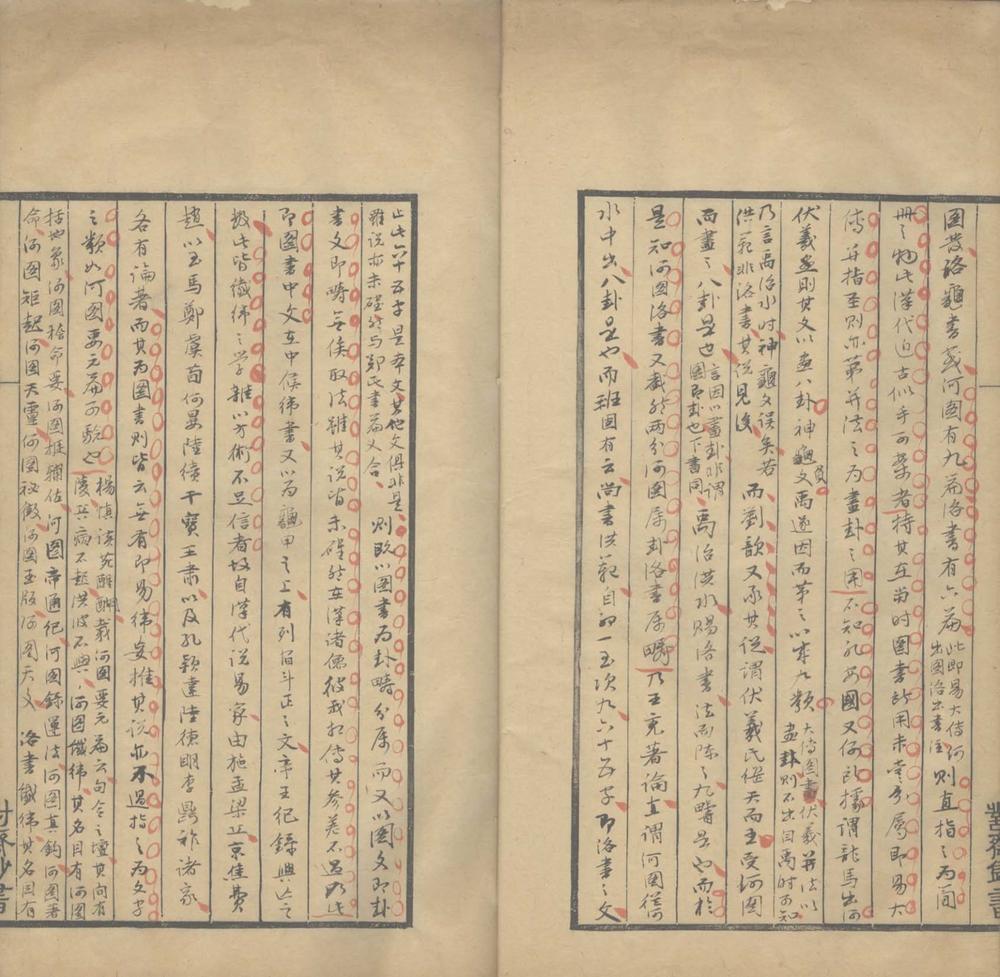 圖發洛龜書感河圖有九篇洛書有六篇此即易大傳河出圖洛出書注則直指之為簡
冊之物此漢代近古似乎可據者特其在當時圖書所用未嘗分屬即易大
傳并指至則亦第并法之為畫卦之用不知孔安國又何所據謂龍馬出河
伏羲遂則其文以畫八卦神龜負文禹遂因而第之以成九類大傳圖書伏羲并法以畫卦則不出自禹時可知
乃言禹治水時神龜文誤矣若洪範非洛書其說見後而劉歆又承其說謂伏羲氏繼天而王受河圖
而畫之八卦是也言因以畫卦非謂圖即卦也下書同禹治洪水賜洛書法而陳之九疇是也而於
是知河圖洛書又截然兩分河圖屬卦洛書屬疇乃王充著論直謂河圖從河
水中出八卦是也而班固有云尚書洪範自初一至次九六十五字即洛書之文
此六十五字是本文其他文俱非是雖說亦未確然與鄭氏書篇又合則既以圖書為卦疇分屬而又以圖文即卦
書文即疇無俟取法雖其說皆未確然在漢諸儒彼我相傳其參差不過如此
即圖書中文在中候緯書又以為龜甲之上有列宿斗正之文帝王紀錄興亡之
數此皆讖緯之學雜以方術不足信者故自漢代說易家由施孟梁丘京焦費
趙以至馬鄭虞荀何晏陸績干寶王肅以及孔穎達陸德明李鼎祚諸家
各有論著而其為圖書則皆云無有即易緯妄推其說亦不過指之為文字
之類如河圖要元篇可驗也楊慎渓苑醍醐載河圖要元篇云句金之壇其間有陵兵病不起洪波不興河圖讖緯其名目有河圖
括地象河圖稽命要河圖挺輔佐河圖帝通紀河圖錄運法河圖真鉤河圖著
命河圖矩起河圖天靈河圖秘徵河圖玉版河圖天文洛書讖緯其名目有